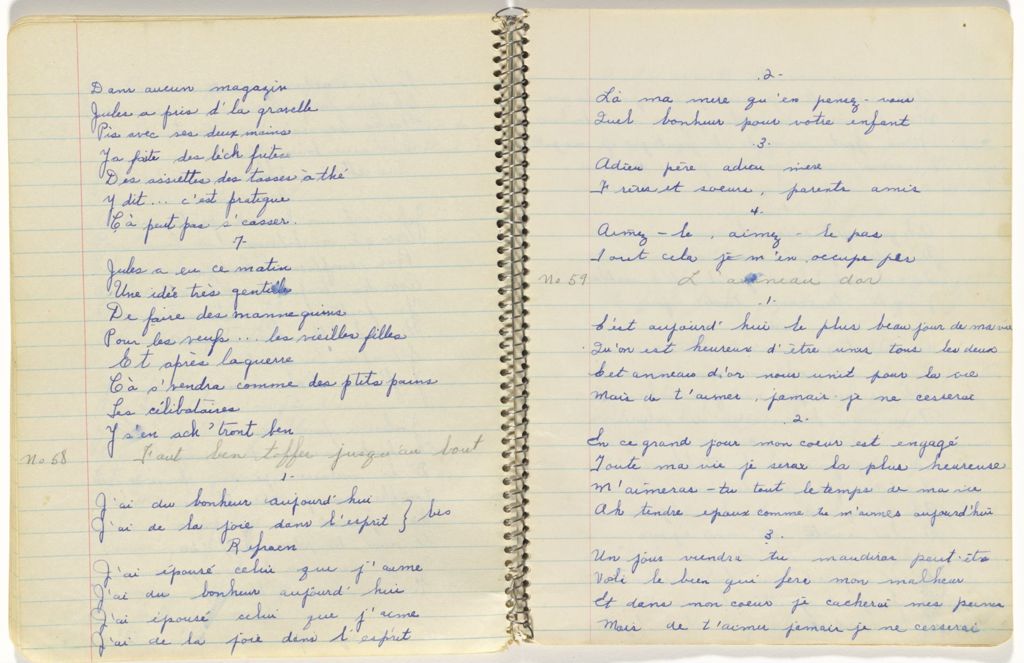 Dans aucun magazin
Jules a pris d'la gravelle
Pis avec ses deux mains
Ya faite des lèch frites
Des assiettes des tasses à thé
Y dit... c'est pratique
Çà peut pas s'casser.
7-
Jules a eu ce matin
Une idée très gentille
De faire des mannequins
Pour les veufs... les vieilles filles
Et après laguerre
Cà s'vendra comme des ptits pains
Les célibataires
Y s'en ach'tront ben
No 58 Faut ben toffer jusqu'au bout
1-
J'ai du bonheur aujourd'hui
J'ai de la joie dans l'esprit } bis
Refraen
J'ai épousé celui que j'aime
J'ai du bonheur aujourd'hui
J'ai épousé celui que j'aime
J'ai de la joie dans l'esprit
.2-
Là ma mere qu'en pensez-vous
Quel bonheur pour votre enfant
.3.
Adieu père adieu mere
Frères et soeurs, parents amis
4-
Aimez-le, aimez-le pas
Tout cela je m'en occupe pas
No 59 L'anneau dor
.1.
C'est aujourd'hui le plus beau jour de ma vie
Qu'on est heureux d'être unis tous les deux
Cet anneau d'or nous unit pour la vie
Mais de t'aimer, jamais je ne cesserai
.2-
En ce grand jour mon coeur est engagé
Toute ma vie je serai la plus heureuse
M'aimeras-tu tout le temps de ma vie
Ah tendre epoux comme tu m'aimes aujourd'hui
3-
Un jour viendra tu maudiras peut-êtr
Voli le bien qui fera mon malheur
Et dans mon coeur je cacherai mes peines
Mais de t'aimer jamais je ne cesserai